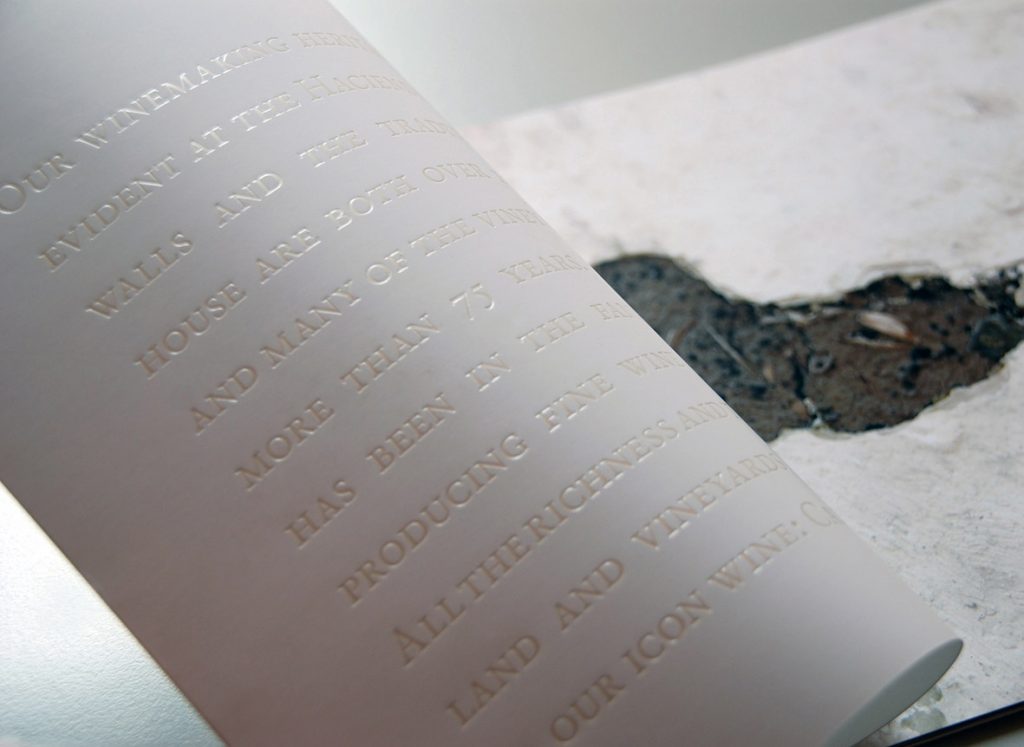 OUR WINEMAKING
EVIDENT AT THE
WALLS AND THE
HOUSE ARE BOTH OVER
AND MANY OF THE
MORE THAN 75 YEARS
HAS BEEN IN THE
PRODUCING FINE
ALL THE RICHNESS AND
LAND AND VINEYARDS
OUR ICON WINE: